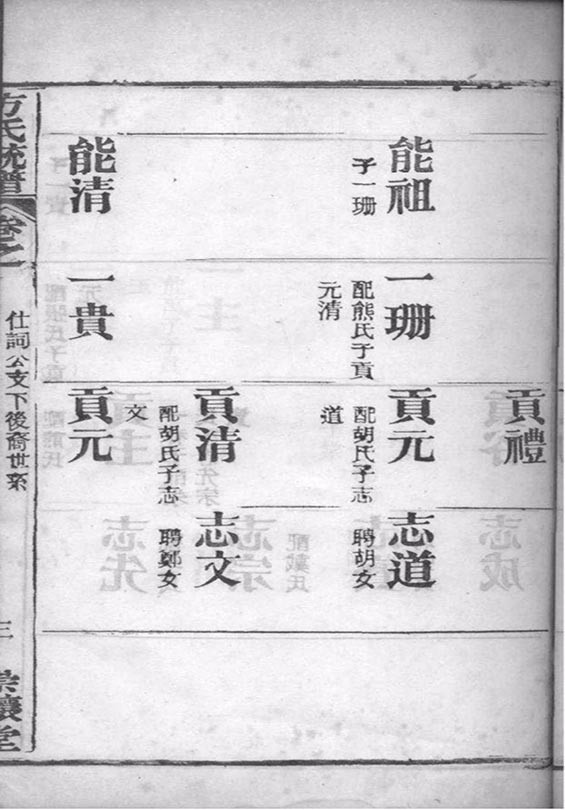 貢禮
能祖
子一珊
一珊
配熊氏子貢
元清
貢元
配胡氏子志
道
志道
聘胡女
貢清
配胡氏子志
文
志文
聘鄭女
能清
一貴
貢元
方氏統譜
卷之一
仕詞公支下後裔世系
三